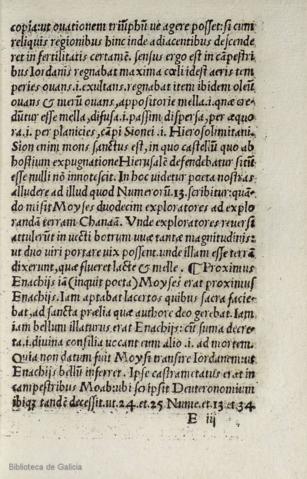 copiā:ut ovationem triūphū ve agere posset: si cum
reliquis regionibus hinc inde adiacentibus descende
ret in fertilitatis certamē. sensus ergo est in cāpestri
bus Iordanis regnabat maxima cœli idest aeris tem
peries ouans .i. exultans. regnabat item ibidem oleū
ouans & merū ouans, appositorie mella .i. quæ cre-
dūtur esse mella, difusa .i. passim dispersa, per æquo
ra .i. per planicies, cāpi Sionei .i. Hierosolimitani.
Sion enim mons sanctus est, in quo castellū quo ab
hostium expugnatione Hierusalē defendebatur sitū
esse nulli nō innotescit. In hoc uidetur poeta nostras
alludere ad illud quod Numerorū .13. scribitur: quā-
do misit Moyses duodecim exploratores ad explo
randā terram Chanaā. Vnde exploratores reuersi
attulerūt in uecti botrum uuæ tantæ magnitudinis:
ut duo viri portare vix possent. unde illam esse terrā
dixerunt, quæ flueret lacte & melle. ¶ Proximus
Enachijs iā (inquit poeta) Moyses erat proximus
Enachijs. Iam aptabat lacertos quibus sacra facie-
bat, ad sancta prælia quæ authore deo gerebat. Iam
iam bellum illaturus erat Enachijs: cū summa decre-
ta .i. diuina consilia vocant eum alio .i. ad mortem.
Quia non datum fuit Moysi transire Iordanem: ut
Enachijs bellū inferret. Ipse castrametatus erat in
campestribus Moab: ubi scripsit Deuteronomium
ibiq; tandē decessit. ut .24. et .25. Nume. et .13. et .34
E iij
Biblioteca de Galicia